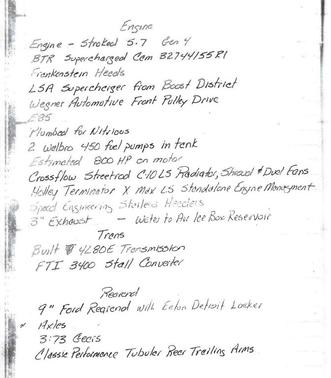 Engine
Engine - Stroked 5.7 Gen 4
BTR Supercharged Cam B2744155R1
Frankenstein Heads
LSA Supercharger from Boost District
Wegner Automotive Front Pulley Drive
E85
Plumbed for Nitrious
2 Walbro 450 fuel pumps in tank
Estimated 800 HP on motor
Crossflow Streetrod C-10 LS Radiator, Shroud & Duel Fans
Holley Terminator X Max LS Standalone Engine Managment
Speed Engineering Stainless Headers
3" Exhaust - Water to Air Ice Box Reservoir
Trans
Built 4L80E Transmission
FTI 3400 Stall Converter
Rearend
9" Ford Rearend with Eaton Detroit Locker
* Axles
3:73 Gears
Classic Performance Tubular Rear Trailing Arms